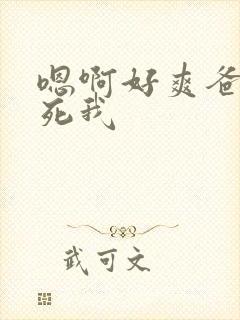 嗯啊好爽爸
死我
武可文